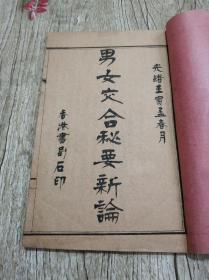 光緒壬寅孟春月
男女交合秘要新論
香港書局石印